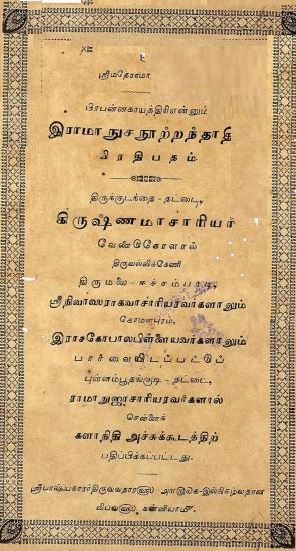 ஸ்ரீமதேராமா
பிரபன்னகாயத்திரிஎன்னும்
இராமாநுசநூற்றந்தாதி
பிரதிபதம்.
திருக்குடந்தை - தட்டை,
கிருஷ்ணமாசாரியர்
வேண்டுகோளால்
திருவல்லிக்கேணி
திருமலை - ஈச்சம்பாடி,
ஸ்ரீநிவாஸராகவாசாரியரவர்களாலும்
கோமளபுரம்,
இராசகோபாலபிள்ளையவர்களாலும்
பார்வையிடப்பட்டுப்
புள்ளம்பூதங்குடி - தட்டை,
ராமாநுஜாசாரியரவர்களால்
சென்னைக்
களாநிதி அச்சுக்கூடத்திற்
பதிப்பிக்கப்பட்டது.